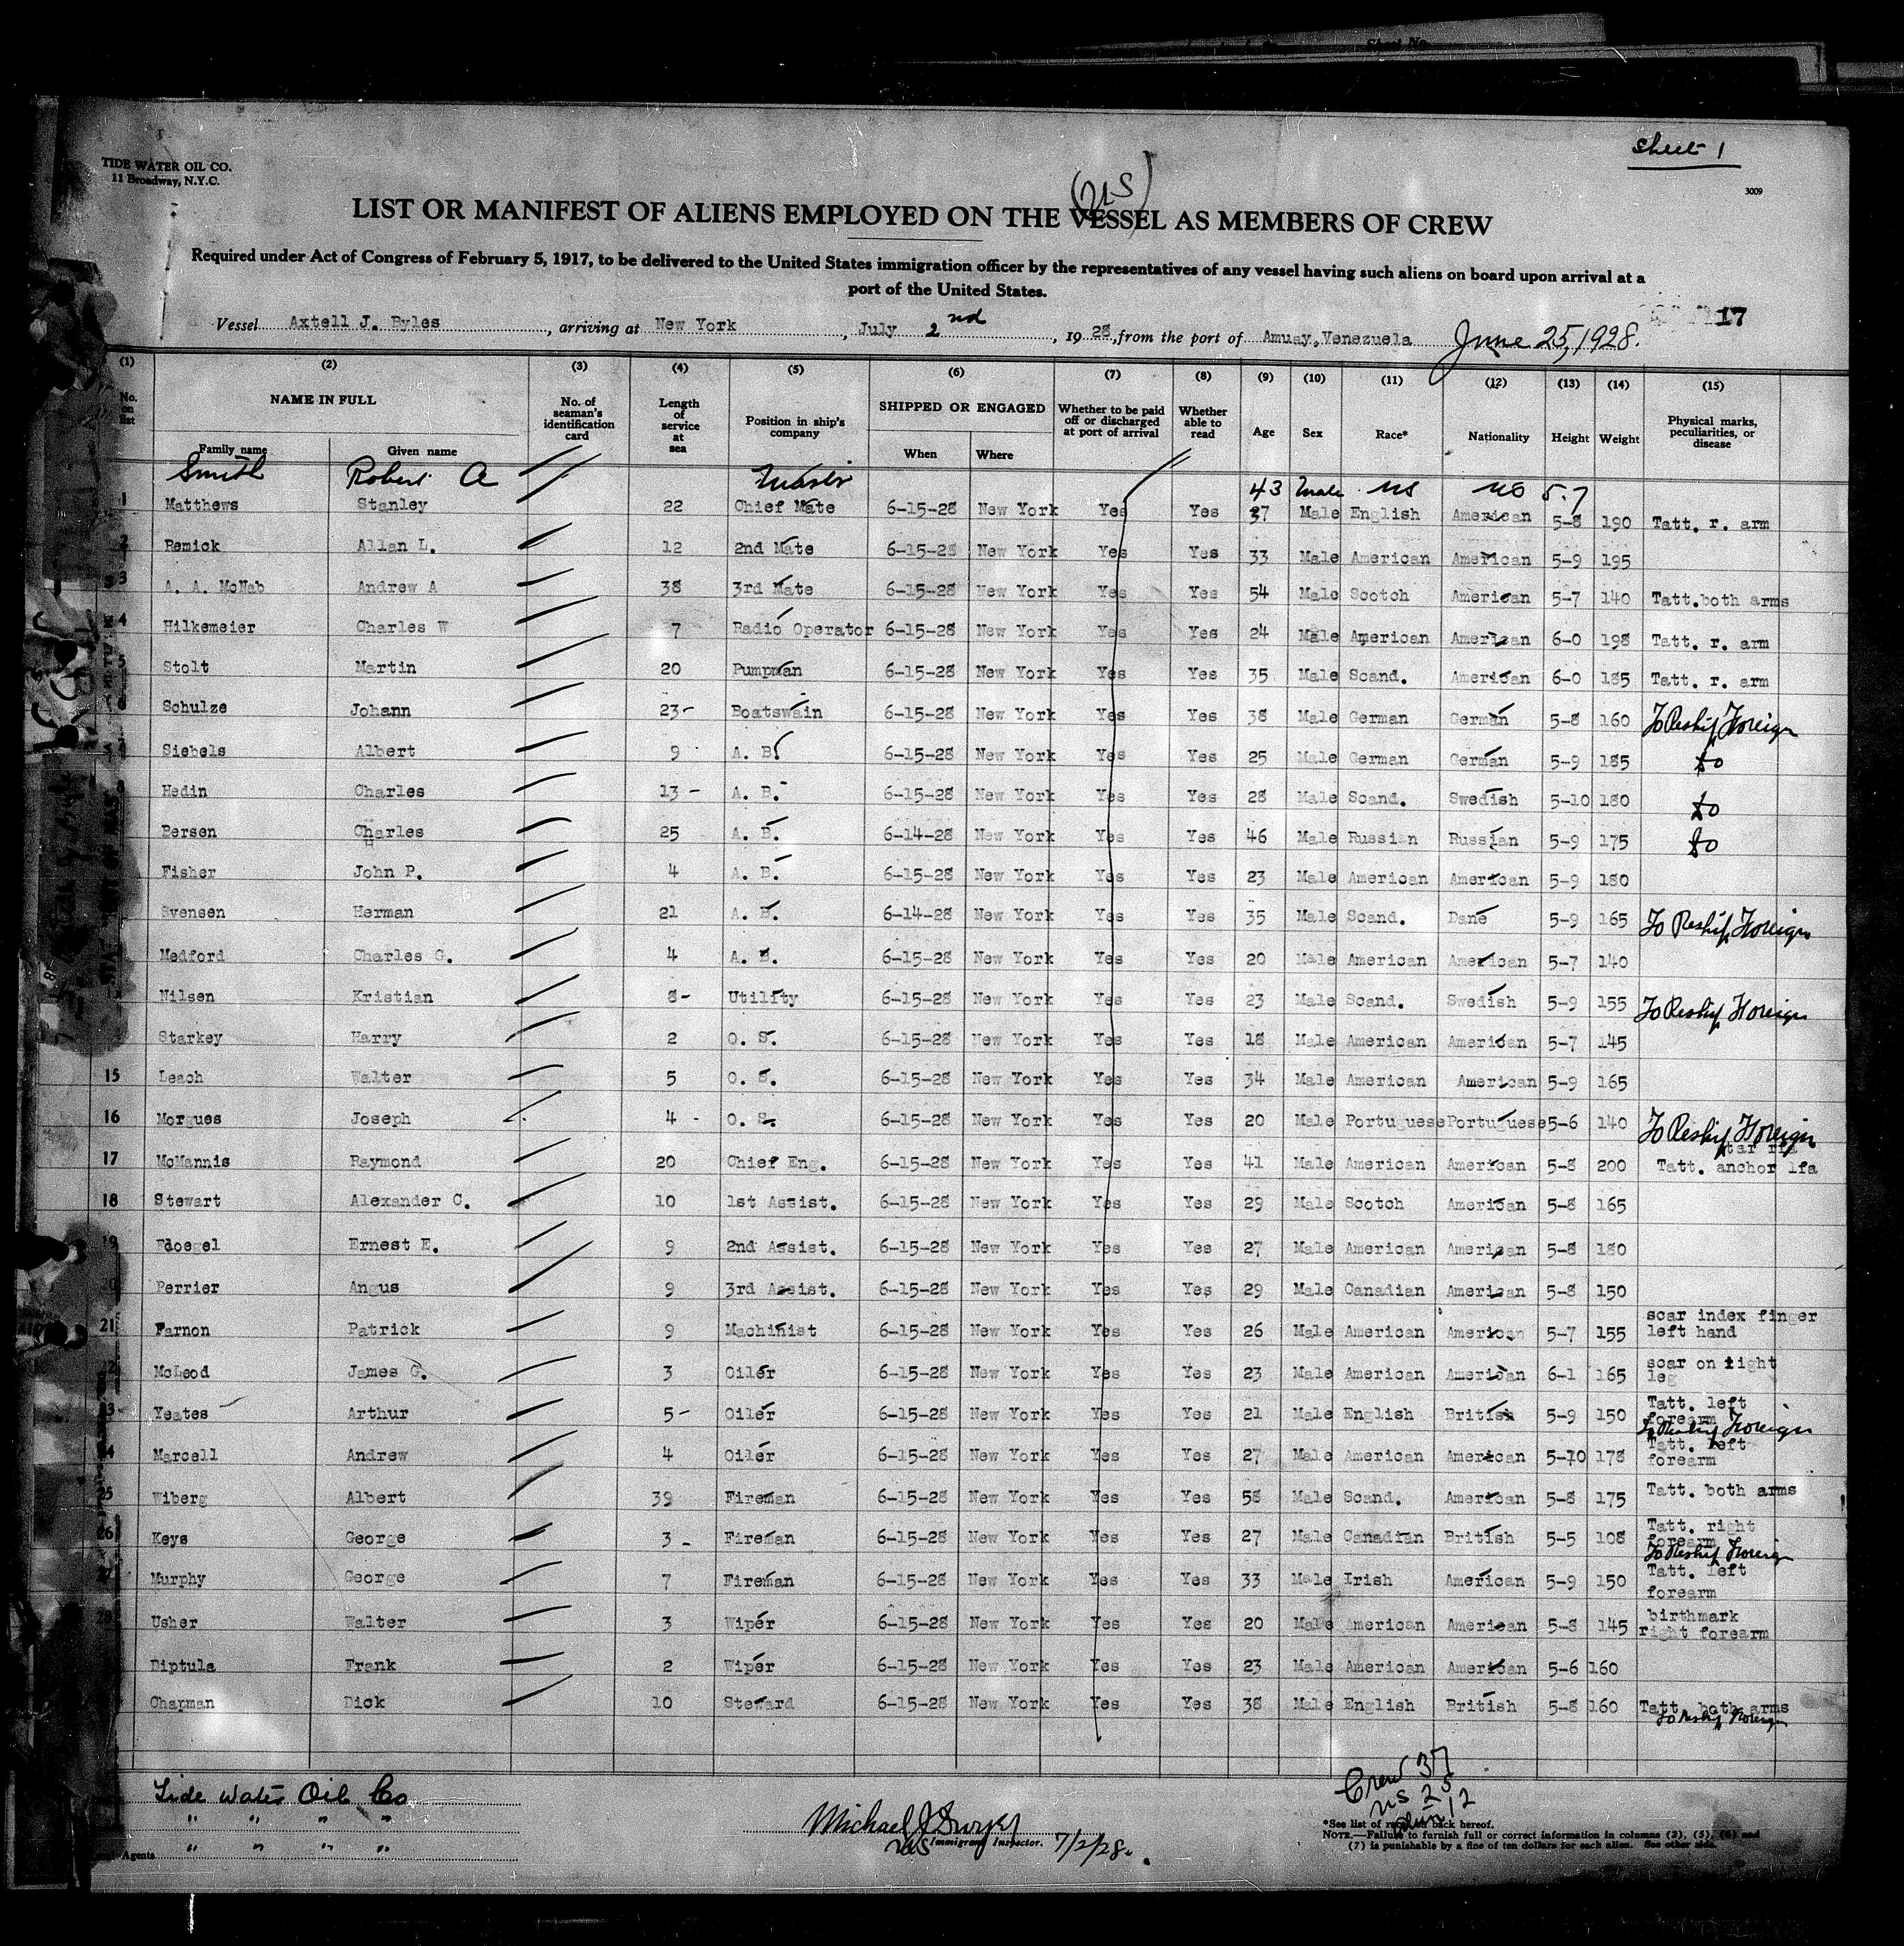 Sheet 1
TIDE WATER OIL CO.
11 Broadway, N.Y.C.
3009
(US)
LIST OR MANIFEST OF ALIENS EMPLOYED ON THE VESSEL AS MEMBERS OF CREW
Required under Act of Congress of February 5, 1917, to be delivered to the United States immigration officer by the representatives of any vessel having such aliens on board upon arrival at a
port of the United States.
17
Vessel Axtell J. Byles, arriving at New York, July 2nd, 1928, from the port of Amuay, Venezuela June 25, 1928.
(1) (2) (3) (4) (5) (6) (7) (8) (9) (10) (11) (12) (13) (14) (15)
No. on list NAME IN FULL Family name Given name No. of seaman's identification card Length of service at sea Position in ship's company SHIPPED OR ENGAGED When Where Whether to be paid off or discharged at port of arrival Whether able to read Age Sex Race* Nationality Height Weight Physical marks, peculiarities, or disease
Smith Robert A Master 43 Male US US 5-7
1 Matthews Stanley 22 Chief Mate 6-15-28 New York Yes Yes 37 Male English American 5-8 190 Tatt. r. arm
2 Remick Allan L. 12 2nd Mate 6-15-28 New York Yes Yes 33 Male American American 5-9 195
3 A. A. McNab Andrew A 38 3rd Mate 6-15-28 New York Yes Yes 54 Male Scotch American 5-7 140 Tatt.both arms
4 Hilkemeier Charles W 7 Radio Operator 6-15-28 New York Yes Yes 24 Male American American 6-0 198 Tatt. r. arm
5 Stolt Martin 20 Pumpman 6-15-28 New York Yes Yes 35 Male Scand. American 6-0 185 Tatt. r. arm
6 Schulze Johann 23- Boatswain 6-15-28 New York Yes Yes 38 Male German German 5-8 160 To Reship Foreign
Siebels Albert 9 A. B. 6-15-28 New York Yes Yes 25 Male German German 5-9 185 do
8 Hedin Charles 13 - A. B. 6-15-28 New York Yes Yes 28 Male Scand. Swedish 5-10 180 do
Bersen Charles 25 A. B. 6-14-28 New York Yes Yes 46 Male Russian Russian 5-9 175 do
Fisher John P. 4 A. B. 6-15-28 New York Yes Yes 23 Male American American 5-9 180
Svensen Herman 21 A. B. 6-14-28 New York Yes Yes 35 Male Scand. Dane 5-9 165 To Reship Foreign
Medford Charles G. 4 A. B. 6-15-28 New York Yes Yes 20 Male American American 5-7 140
Nilsen Kristian 8- Utility 6-15-28 New York Yes Yes 23 Male Scand. Swedish 5-9 155 To Reship Foreign
Starkey Harry 2 O. S. 6-15-28 New York Yes Yes 18 Male American American 5-7 145
15 Leach Walter 5 O. S. 6-15-28 New York Yes Yes 34 Male American American 5-9 165
16 Morgues Joseph 4 - O. S. 6-15-28 New York Yes Yes 20 Male Portuguese Portuguese 5-6 140 To Reship Foreign
17 McMannis Raymond 20 Chief Eng. 6-15-28 New York Yes Yes 41 Male American American 5-8 200 star rfa Tatt. anchor lfa
18 Stewart Alexander C. 10 1st Assist. 6-15-28 New York Yes Yes 29 Male Scotch American 5-8 165
19 Floegel Ernest E. 9 2nd Assist. 6-15-28 New York Yes Yes 27 Male American American 5-8 180
20 Perrier Angus 9 3rd Assist. 6-15-28 New York Yes Yes 29 Male Canadian American 5-8 150
21 Farnon Patrick 9 Machinist 6-15-28 New York Yes Yes 26 Male American American 5-7 155 scar index finger left hand
22 McLeod James G. 3 Oiler 6-15-28 New York Yes Yes 23 Male American American 6-1 165 scar on right leg
23 Yeates Arthur 5- Oiler 6-15-28 New York Yes Yes 21 Male English British 5-9 150 Tatt. left forearm To Reship Foreign
24 Marcell Andrew 4 Oiler 6-15-28 New York Yes Yes 27 Male American American 5-10 178 Tatt. left forearm
25 Wiberg Albert 39 Fireman 6-15-28 New York Yes Yes 58 Male Scand. American 5-8 175 Tatt. both arms
26 Keys George 3 - Fireman 6-15-28 New York Yes Yes 27 Male Canadian British 5-5 108 Tatt. right forearm To Reship Foreign
27 Murphy George 7 Fireman 6-15-28 New York Yes Yes 33 Male Irish American 5-9 150 Tatt. left forearm
28 Usher Walter 3 Wiper 6-15-28 New York Yes Yes 20 Male American American 5-8 145 birthmark right forearm
Diptula Frank 2 Wiper 6-15-28 New York Yes Yes 23 Male American American 5-6 160
Chapman Dick 10 Steward 6-15-28 New York Yes Yes 38 Male English British 5-8 160 Tatt. both arms To Reship Foreign
Tide Water Oil Co
" " " "
" " " "
Agents
Michael J Dwyer
US Immigrant Inspector. 7/2/28.
Crew 37
US 25
alien 12
*See list of races on back hereof.
NOTE.—Failure to furnish full or correct information in columns (2), (5), (6) and
(7) is punishable by a fine of ten dollars for each alien. See other side.